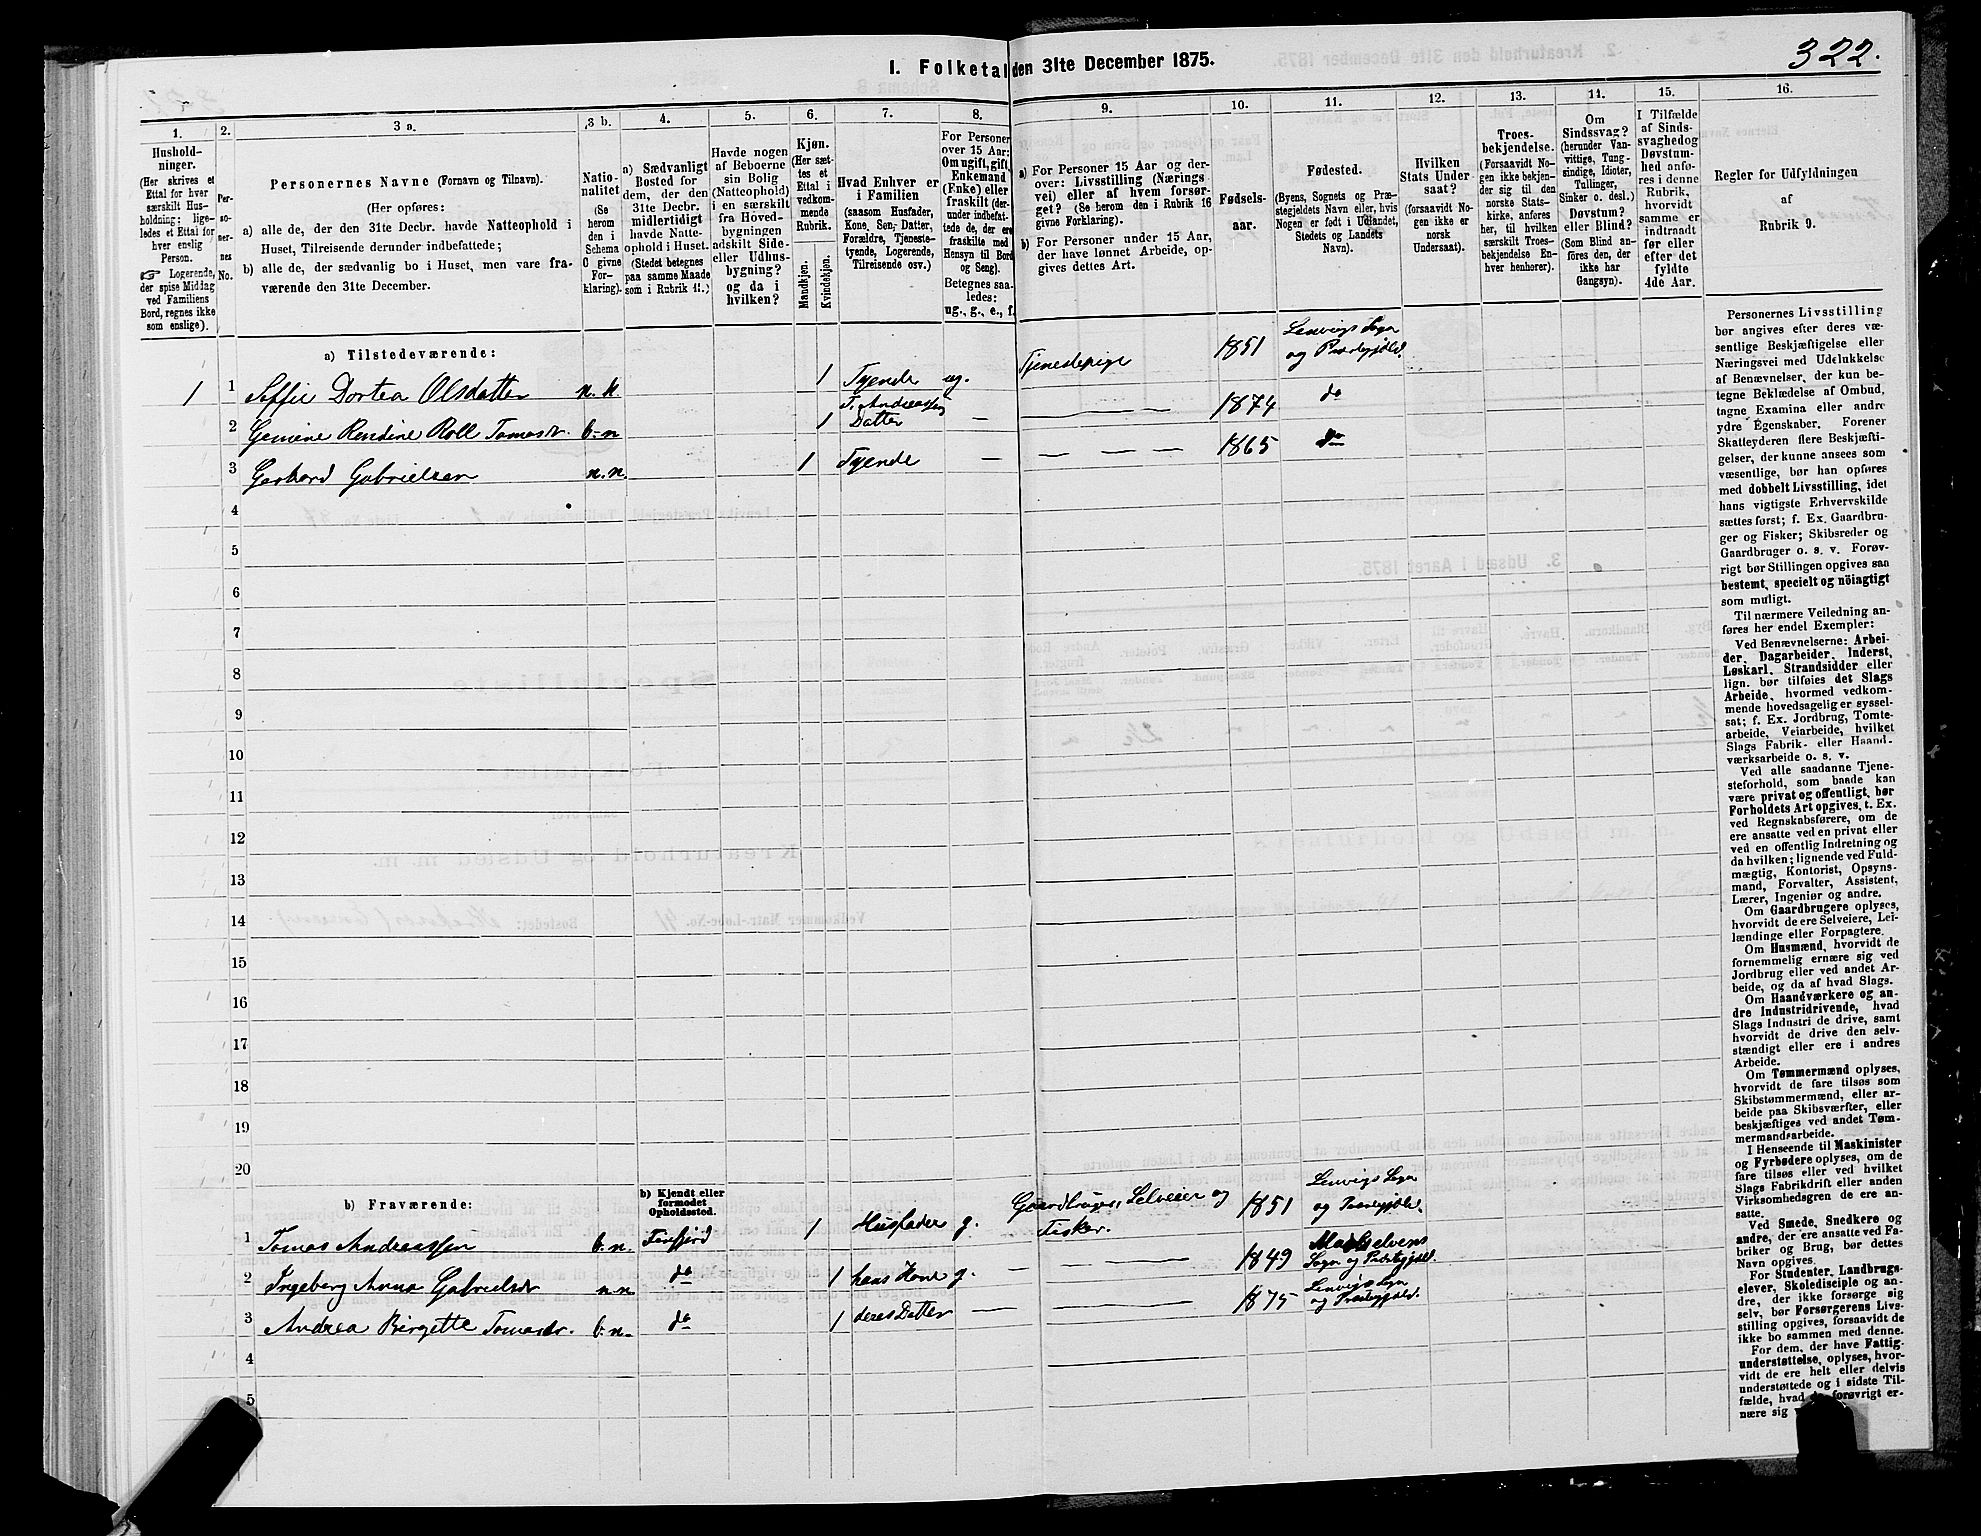 322.
I. Folketal den 31te December 1875.
1.
Hushold-
ninger.
(Her skrives et
Ettal for hver
særskilt Hus-
holdning; lige-
ledes et Ettal for
hver enslig
Person.
☞ Logerende,
der spise Middag
ved Familiens
Bord, regnes ikke
som enslige).
2.
Per-
so-
ner-
nes
No.
3 a.
Personernes Navne (Fornavn og Tilnavn).
(Her opføres:
a) alle de, der den 31te Decbr. havde Natteophold i
Huset, Tilreisende derunder indbefattede;
b) alle de, der sædvanlig bo i Huset, men vare fra-
værende den 31te December.
3 b.
Natio-
nalitet
(Se
herom
den i
Schema
O givne
For-
klaring).
4.
a) Sædvanligt
Bosted for
dem, der den
31te Decbr.
midlertidigt
havde Natte-
ophold i Huset.
(Stedet betegnes
paa samme Maade
som i Rubrik 11.)
5.
Havde nogen
af Beboerne
sin Bolig
(Natteophold)
i en særskilt
fra Hoved-
bygningen
adskilt Side-
eller Udhus-
bygning?
og da i
hvilken?
6.
Kjøn.
(Her sæt-
tes et
Ettal i
vedkom-
mende
Rubrik.
Mandkjøn.
Kvindekjøn.
7.
Hvad Enhver er
i Familien
(saasom Husfader,
Kone, Søn, Datter,
Forældre, Tjeneste-
tyende, Logerende,
Tilreisende osv.)
8.
For Personer
over 15 Aar:
Om ugift, gift,
Enkemand
(Enke) eller
fraskilt (der-
under indbefat-
tede de, der ere
fraskilte med
Hensyn til Bord
og Seng).
Betegnes saa-
ledes:
ug., g., e., f.
9.
a) For Personer 15 Aar og der-
over: Livsstilling (Nærings
vei) eller af hvem forsør-
get? (Se herom den i Rubrik 16
givne Forklaring).
b) For Personer under 15 Aar,
der have lønnet Arbeide, op-
gives dettes Art.
10.
Fødsels-
aar.
11.
Fødested.
(Byens, Sognets og Præ-
stegjeldets Navn eller, hvis
Nogen er født i Udlandet,
Stedets og Landets
Navn).
12.
Hvilken
Stats Under
saat?
(forsaavidt No-
gen ikke er
norsk
Undersaat).
13.
Troes-
bekjendelse.
(Forsaavidt No-
gen ikke bekjen-
der sig til den
norske Stats-
kirke, anføres
her, til hvilken
særskilt Troes-
bekjendelse En-
hver henhorer).
14.
Om
Sindssvag?
(herunder Van-
vittige, Tung-
sindige, Idioter,
Tullinger,
Sinker o. desl.)
Døvstum?
eller Blind?
(Som Blind an-
føres den, der
ikke har
Gangsyn).
15.
I Tilfælde
af Sinds-
svaghed og
Døvstum-
hed anfø-
res i denne
Rubrik,
hvorvidt
samme er
indtraadt
før eller
efter det
fyldte
4de Aar.
16.
Regler for Udfyldningen
af
Rubrik 9.
a) Tilstedeværende:
1 1 Dortea Olsdatter n. n. 1 Tyende ug. Tjenestepige 1851 Lenvigs Sogn og Præstegjeld.
2 Rendine Roll Tomasdr. b-n 1 T. Andreassen Datter — — — 1874 do
3 Gerhard Gabrielsen n.n. 1 Tyende — — — 1865 do
4
5
6
7
8
9
10
11
12
13
14
15
16
17
18
19
20
b) Fraværende:
b) Kjendt eller
formodet
Opholdssted.
1 Tomas Andreassen b. n. 1 Husfader g. Gaardbruger, Selveier og Fisker. 1851 Lenvigs Sogn og Præstegjeld.
2 Ingeberg Anna Gabrielsdr n. n do 1 hans Kone g. — — — 1849 Maalselvens Sogn og Præstegjeld.
3 Andrea Birgette Tomasdr. b. n. do 1 deres Datter — — — 1875 Lenvigs Sogn og Præstegjeld.
4
5
Personernes Livsstilling
bør angives efter deres væ-
sentlige Beskjæftigelse eller
Næringsvei med Udelukkelse
af Benævnelser, der kun be-
tegne Beklædelse af Ombud,
tagne Examina eller andre
ydre Egenskaber. Forener
Skatteyderen flere Beskjæfti-
gelser, der kunne ansees som
væsentlige, bør han opføres
med dobbelt Livsstilling, idet
hans vigtigste Erhvervskilde
sættes først; f. Ex. Gaardbru-
ger og Fisker; Skibsreder og
Gaardbruger o. s. v. Forøv-
rigt bør Stillingen opgives saa
bestemt, specielt og nöiagtigt
som muligt.
Til nærmere Veiledning an-
føres her endel Exempler:
Ved Benævnelserne: Arbei-
der, Dagarbeider, Inderst,
Løskarl, Strandsidder eller
lign. bør tilføies det Slags
Arbeide, hvormed vedkom-
mende hovedsagelig er syssel-
sat; f. Ex. Jordbrug, Tomte-
arbeide, Veiarbeide, hvilket
Slags Fabrik- eller Haand-
værksarbeide o. s. v.
Ved alle saadanne Tjene-
steforhold, som baade kan
være privat og offentligt, bør
Forholdets Art opgives, t. Ex.
ved Regnskabsførere, om de
ere ansatte ved en privat eller
ved en offentlig Indretning og
da hvilken; lignende ved Fuld-
mægtig, Kontorist, Opsyns-
mand, Forvalter, Assistent,
Lærer, Ingeniør og andre.
Om Gaardbrugere oplyses,
hvorvidt de ere Selveiere, Lei-
lændinge eller Forpagtere.
Om Husmænd, hvorvidt de
fornemmelig ernære sig ved
Jordbrug eller ved andet Ar-
beide, og da af hvad Slags.
Om Haandværkere og an-
dre Industridrivende, hvad
Slags Industri de drive, samt
hvorvidt de drive den selv-
stændigt eller ere i andres
Arbeide.
Om Tømmermænd oplyses,
hvorvidt de fare tilsøs som
Skibstømmermænd, eller ar-
beide paa Skibsværfter, eller
beskjæftiges ved andet Tøm-
mermandsarbeide.
I Henseende til Maskinister
og Fyrbødere oplyses, om de
fare tilsøs eller ved hvilket
Slags Fabrikdrift eller anden
Virksomhedsgren de ere an-
satte.
Ved Smede, Snedkere og
andre, der ere ansatte ved Fa-
briker og Brug, bør dettes
Navn opgives.
For Studenter, Landbrugs-
elever, Skoledisciple og an-
dre, der ikke forsørge sig
selv, bør Forsørgerens Livs-
stilling opgives, forsaavidt de
ikke bo sammen med denne.
For dem, der have Fattig-
understøttelse, oplyses, hvor-
vidt de ere helt eller delvis
understøttede og i sidste Til-
fælde, hvad de forøvrigt er-
nære sig